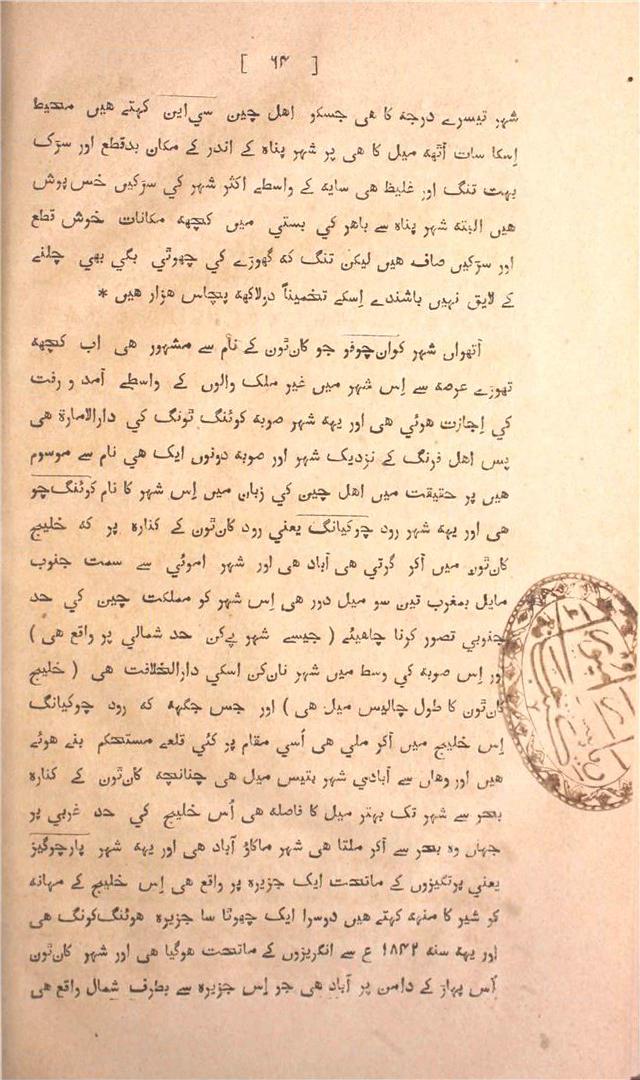 [ ٦٤ ]
شہر تیسرے درجہ کا ھی جسکو اھل چین سي‌این کہتے ھیں محیط
اِسکا سات آٹھہ میل کا ھی پر شہر پناہ کے اندر کے مکان بدقطع اور سڑک
بہت تنگ اور غلیظ ھی سایہ کے واسطے اکثر شہر کي سڑکیں خس‌پوش
ھیں البتہ شہر پناہ سے باھر کي بستي میں کچھہ مکانات خوش قطع
اور سڑکیں صاف ھیں لیکن تنگ کہ گھوڑے کي چھوٹي بگي بھي چلنے
کے لایق نہیں باشندے اِسکے تخمیناً دولاکھہ پچاس ھزار ھیں *
آٹھواں شہر کوان‌چوفو جو کان‌ٹون کے نام سے مشہور ھی اب کچھہ
تھوڑے عرصہ سے اِس شہر میں غیر ملک والوں کے واسطے آمد و رفت
کي اِجازت ھوئي ھی اور یہہ شہر صوبہ کوئنگ ٹونگ کي دارالامارۃ ھی
پس اھل فرنگ کے نزدیک شہر اور صوبہ دونوں ایک ھی نام سے موسوم
ھیں پر حقیقت میں اھل چین کي زبان میں اِس شہر کا نام کوئنگ‌چو
ھی اور یہہ شہر رود چوکیانگ یعني رود کان‌ٹون کے کنارہ پر کہ خلیج
کان‌ٹون میں آکر گرتي ھی آباد ھی اور شہر اموئي سے سمت جنوب
مایل بمغرب تین سو میل دور ھی اِس شہر کو مملکت چین کي حد
جنوبي تصور کرنا چاھیئے ( جیسے شہر پے‌کن حد شمالي پر واقع ھی )
اور اِس صوبہ کي وسط میں شہر نان‌کن اسکي دارالخلافت ھی ( خلیج
کان‌ٹون کا طول چالیس میل ھی ) اور جس جگہہ کہ رود چوکیانگ
اِس خلیج میں آکر ملي ھی اُسي مقام پر کئي قلعے مستحکم بنے ھوئے
ھیں اور وھاں سے آبادي شہر بتیس میل ھی چنانچہ کان‌ٹون کے کنارہ
بحر سے شہر تک بہتر میل کا فاصلہ ھی اُس خلیج کي حد غربي پر
جہاں وہ بحر سے آکر ملتا ھی شہر ماکاؤ آباد ھی اور یہہ شہر پارچوگیز
یعني پرتگیزوں کے ماتحت ایک جزیرہ پر واقع ھی اِس خلیج کے مہانہ
کو شیر کا منہہ کہتے ھیں دوسرا ایک چھوٹا سا جزیرہ ھوئنگ‌کونگ ھی
اور یہہ سنہ ۱۸۴۲ ع سے انگریزوں کے ماتحت ھوگیا ھی اور شہر کان‌ٹون
اُس پہاڑ کے دامن پر آباد ھی جو اِس جزیرہ سے بطرف شمال واقع ھی